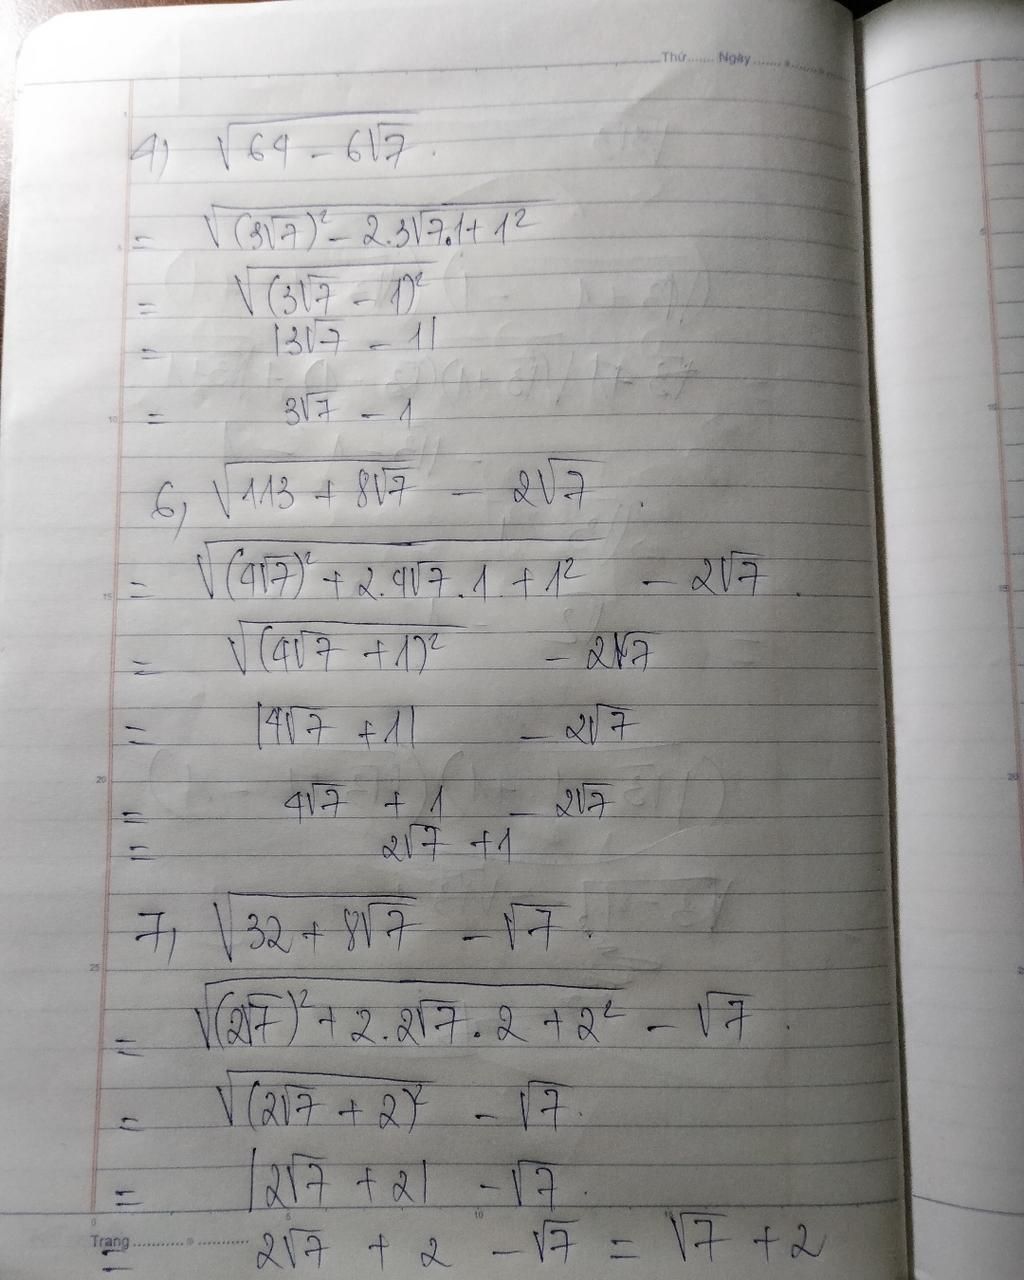 Thứ...... Ngày......
4) √(64 - 6√7).
= √((3√7)² - 2.3√7.1 + 1²)
= √((3√7 - 1)²)
= |3√7 - 1|
= 3√7 - 1
6, √(113 + 8√7) - 2√7.
= √((4√7)² + 2.4√7.1 + 1²) - 2√7.
= √((4√7 + 1)²) - 2√7
= |4√7 + 1| - 2√7
= 4√7 + 1 - 2√7
= 2√7 + 1
7, √(32 + 8√7) - √7.
= √((2√7)² + 2.2√7.2 + 2²) - √7.
= √((2√7 + 2)²) - √7.
= |2√7 + 2| - √7.
= 2√7 + 2 - √7 = √7 + 2
Trang